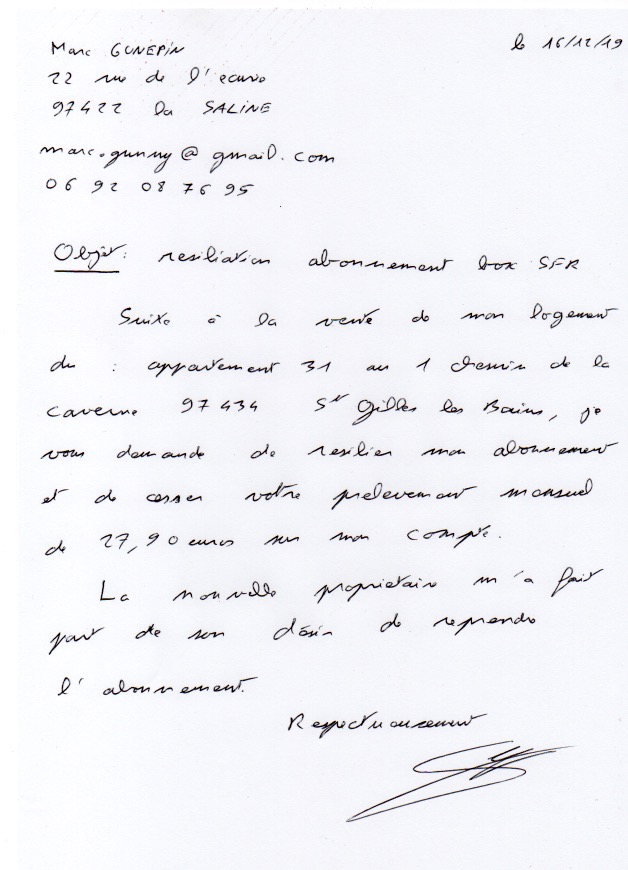 Marc GUNEPIN
le 16/12/19
22 rue de l'ecurie
97422 la SALINE
marc.gunny@gmail.com
06 92 08 76 95
Objet : resiliation abonnement box SFR
Suite à la vente de mon logement
du : appartement 31 au 1 chemin de la
caverne 97434 St Gilles les Bains, je
vous demande de resilier mon abonnement
et de cesser votre prelevement mensuel
de 27,90 euros sur mon compte.
La nouvelle propriétaire m'a fait
part de son désir de reprendre
l'abonnement.
Respectueusement